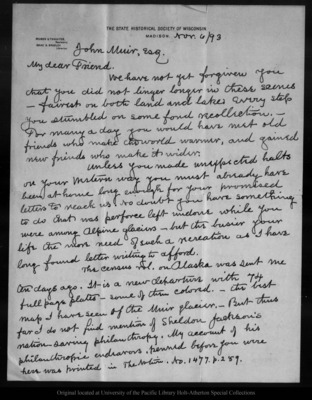 THE STATE HISTORICAL SOCIETY OF WISCONSIN.
MADISON, Nov. 6/93
John Muir, Esq.
My dear Friend.
We have not yet forgiven you
that you did not linger longer in these scenes
- fairest on both land and lakes. Every step
you stumbled on some fond recollection. -
For many a day you would have met old
friends who make the world warmer, and gained
new friends who make it wider.
Unless you made unexpected halts
on your Western way you must already have
been at home long enough for your promised
letter to reach us. No doubt you have something
to do that was perforce left undone while you
were among Alpine glaciers - but the busier your
life the more need of such a recreation as I have
long found letter writing to afford.
The census vol. on Alaska was sent me
ten days ago. It is a new departure with 74
full page plates - some of them colored. - the best
map I have seen of the Muir glacier. - But thus
far I do not find mention of Sheldon Jackson's
nation-saving philanthropy. My account of his
philanthropic endeavors, penned before you were
here was printed in The Nation. No. 1477. p. 289.
Original located at University of the Pacific Library Holt-Atherton Special Collections